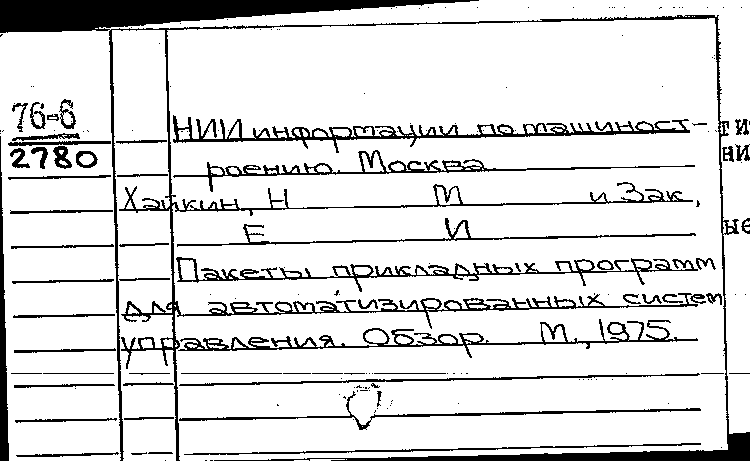 76-6
2780
НИИ информации по машиност-
роению. Москва.
Хайкин, Н М и Зак,
Е И
Пакеты прикладных программ
для автоматизированных систем
управления. Обзор. М., 1975.